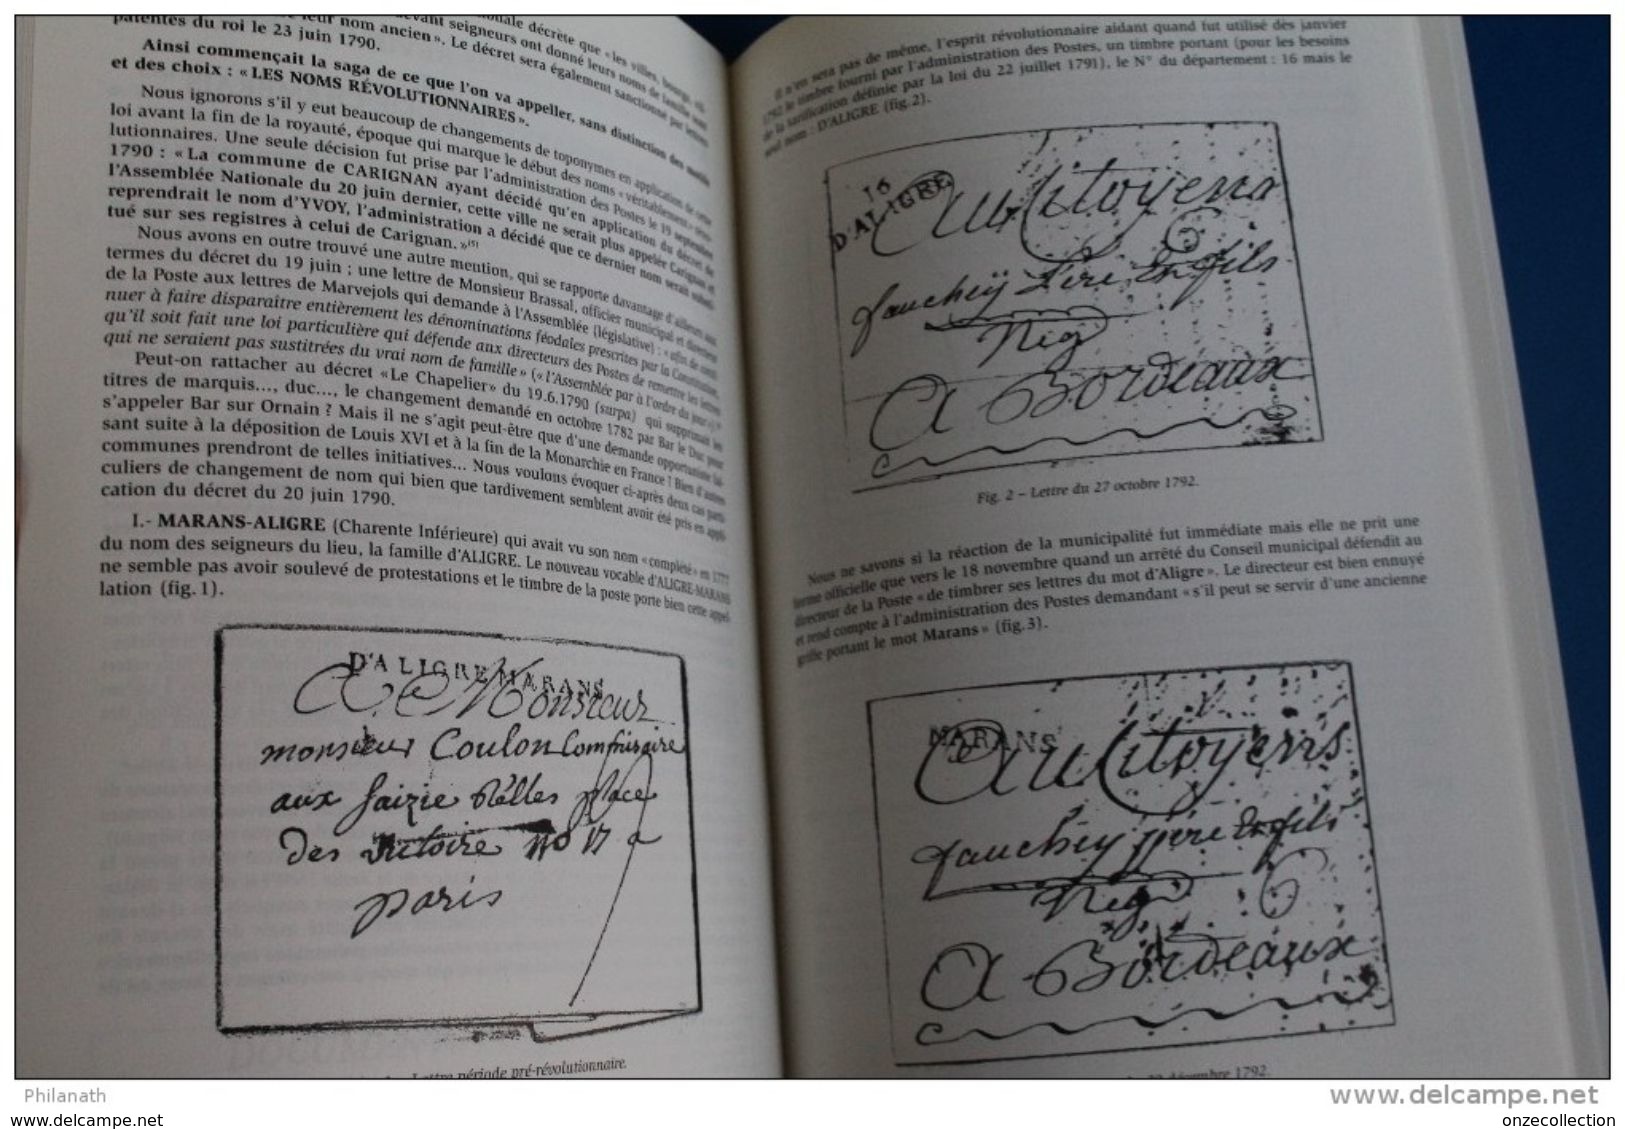 patentes du roi le 23 juin 1790.
Ainsi commençait la saga de ce que l'on va appeller, sans distinction des motifs
et des choix : « LES NOMS RÉVOLUTIONNAIRES ».
Nous ignorons s'il y eut beaucoup de changements de toponymes en application de cette
loi avant la fin de la royauté, époque qui marque le début des noms « véritablement » révo-
lutionnaires. Une seule décision fut prise par l'administration des Postes le 19 septembre
1790 : « La commune de CARIGNAN ayant décidé qu'en application du décret de
l'Assemblée Nationale du 20 juin dernier, cette ville ne serait plus appelée Carignan et
reprendrait le nom d'YVOY, l'administration a décidé que ce dernier nom serait substi-
tué sur ses registres à celui de Carignan. »(5)
Nous avons en outre trouvé une autre meution, qui se rapporte davantage d'ailleurs aux
termes du décret du 19 juin ; une lettre de Monsieur Brassal, officier municipal et directeur
de la Poste aux lettres de Marvejols qui demande à l'Assemblée (législative) : « afin de conti-
nuer à faire disparaître entièrement les dénominations féodales prescrites par la Constitution,
qu'il soit fait une loi particulière qui défende aux directeurs des Postes de remettre les lettres
qui ne seraient pas sustitrées du vrai nom de famille » (« l'Assemblée par à l'ordre du jour »)
Peut-on rattacher au décret «Le Chapelier» du 19.6.1790 (surpa) qui supprimait les
titres de marquis..., duc..., le changement demandé en octobre 1782 par Bar le Duc pour
s'appeler Bar sur Ornain ? Mais il ne s'agit peut-être que d'une demande opportuniste fai-
sant suite à la déposition de Louis XVI et à la fin de la Monarchie en France ? Bien d'autres
communes prendront de telles initiatives... Nous voulons évoquer ci-après deux cas parti-
culiers de changement de nom qui bien que tardivement semblent avoir été pris en appli-
cation du décret du 20 juin 1790.
I.- MARANS-ALIGRE (Charente Inférieure) qui avait vu son nom « complété » en 1777
du nom des seigneurs du lieu, la famille d'ALIGRE. Le nouveau vocable d'ALIGRE-MARANS
ne semble pas avoir soulevé de protestations et le timbre de la poste porte bien cette appel-
lation (fig. 1).
D'ALIGRE MARANS
A Monsieur
monsieur Coulon
aux
des victoire no 17 a
paris
Lettre période pré-révolutionnaire.
Il n'en sera pas de même, l'esprit révolutionnaire aidant quand fut utilisé dès janvier
1792 le timbre fourni par l'administration des Postes, un timbre portant (pour les besoins
de la tarification définie par la loi du 22 juillet 1791), le N° du département : 16 mais le
seul nom : D'ALIGRE (fig. 2).
16
D'ALIGRE
Au Citoyens
fauchey père en fils
Neg
A Bordeaux
Fig. 2 – Lettre du 27 octobre 1792.
Nous ne savons si la réaction de la municipalité fut immédiate mais elle ne prit une
forme officielle que vers le 18 novembre quand un arrêté du Conseil municipal défendit au
directeur de la Poste « de timbrer ses lettres du mot d'Aligre ». Le directeur est bien ennuyé
et rend compte à l'administration des Postes demandant « s'il peut se servir d'une ancienne
griffe portant le mot Marans » (fig. 3).
MARANS
Au Citoyens
fauchey père en fils
Neg
A Bordeaux
décembre 1792.
Philanath
www.delcampe.net
onzecollection